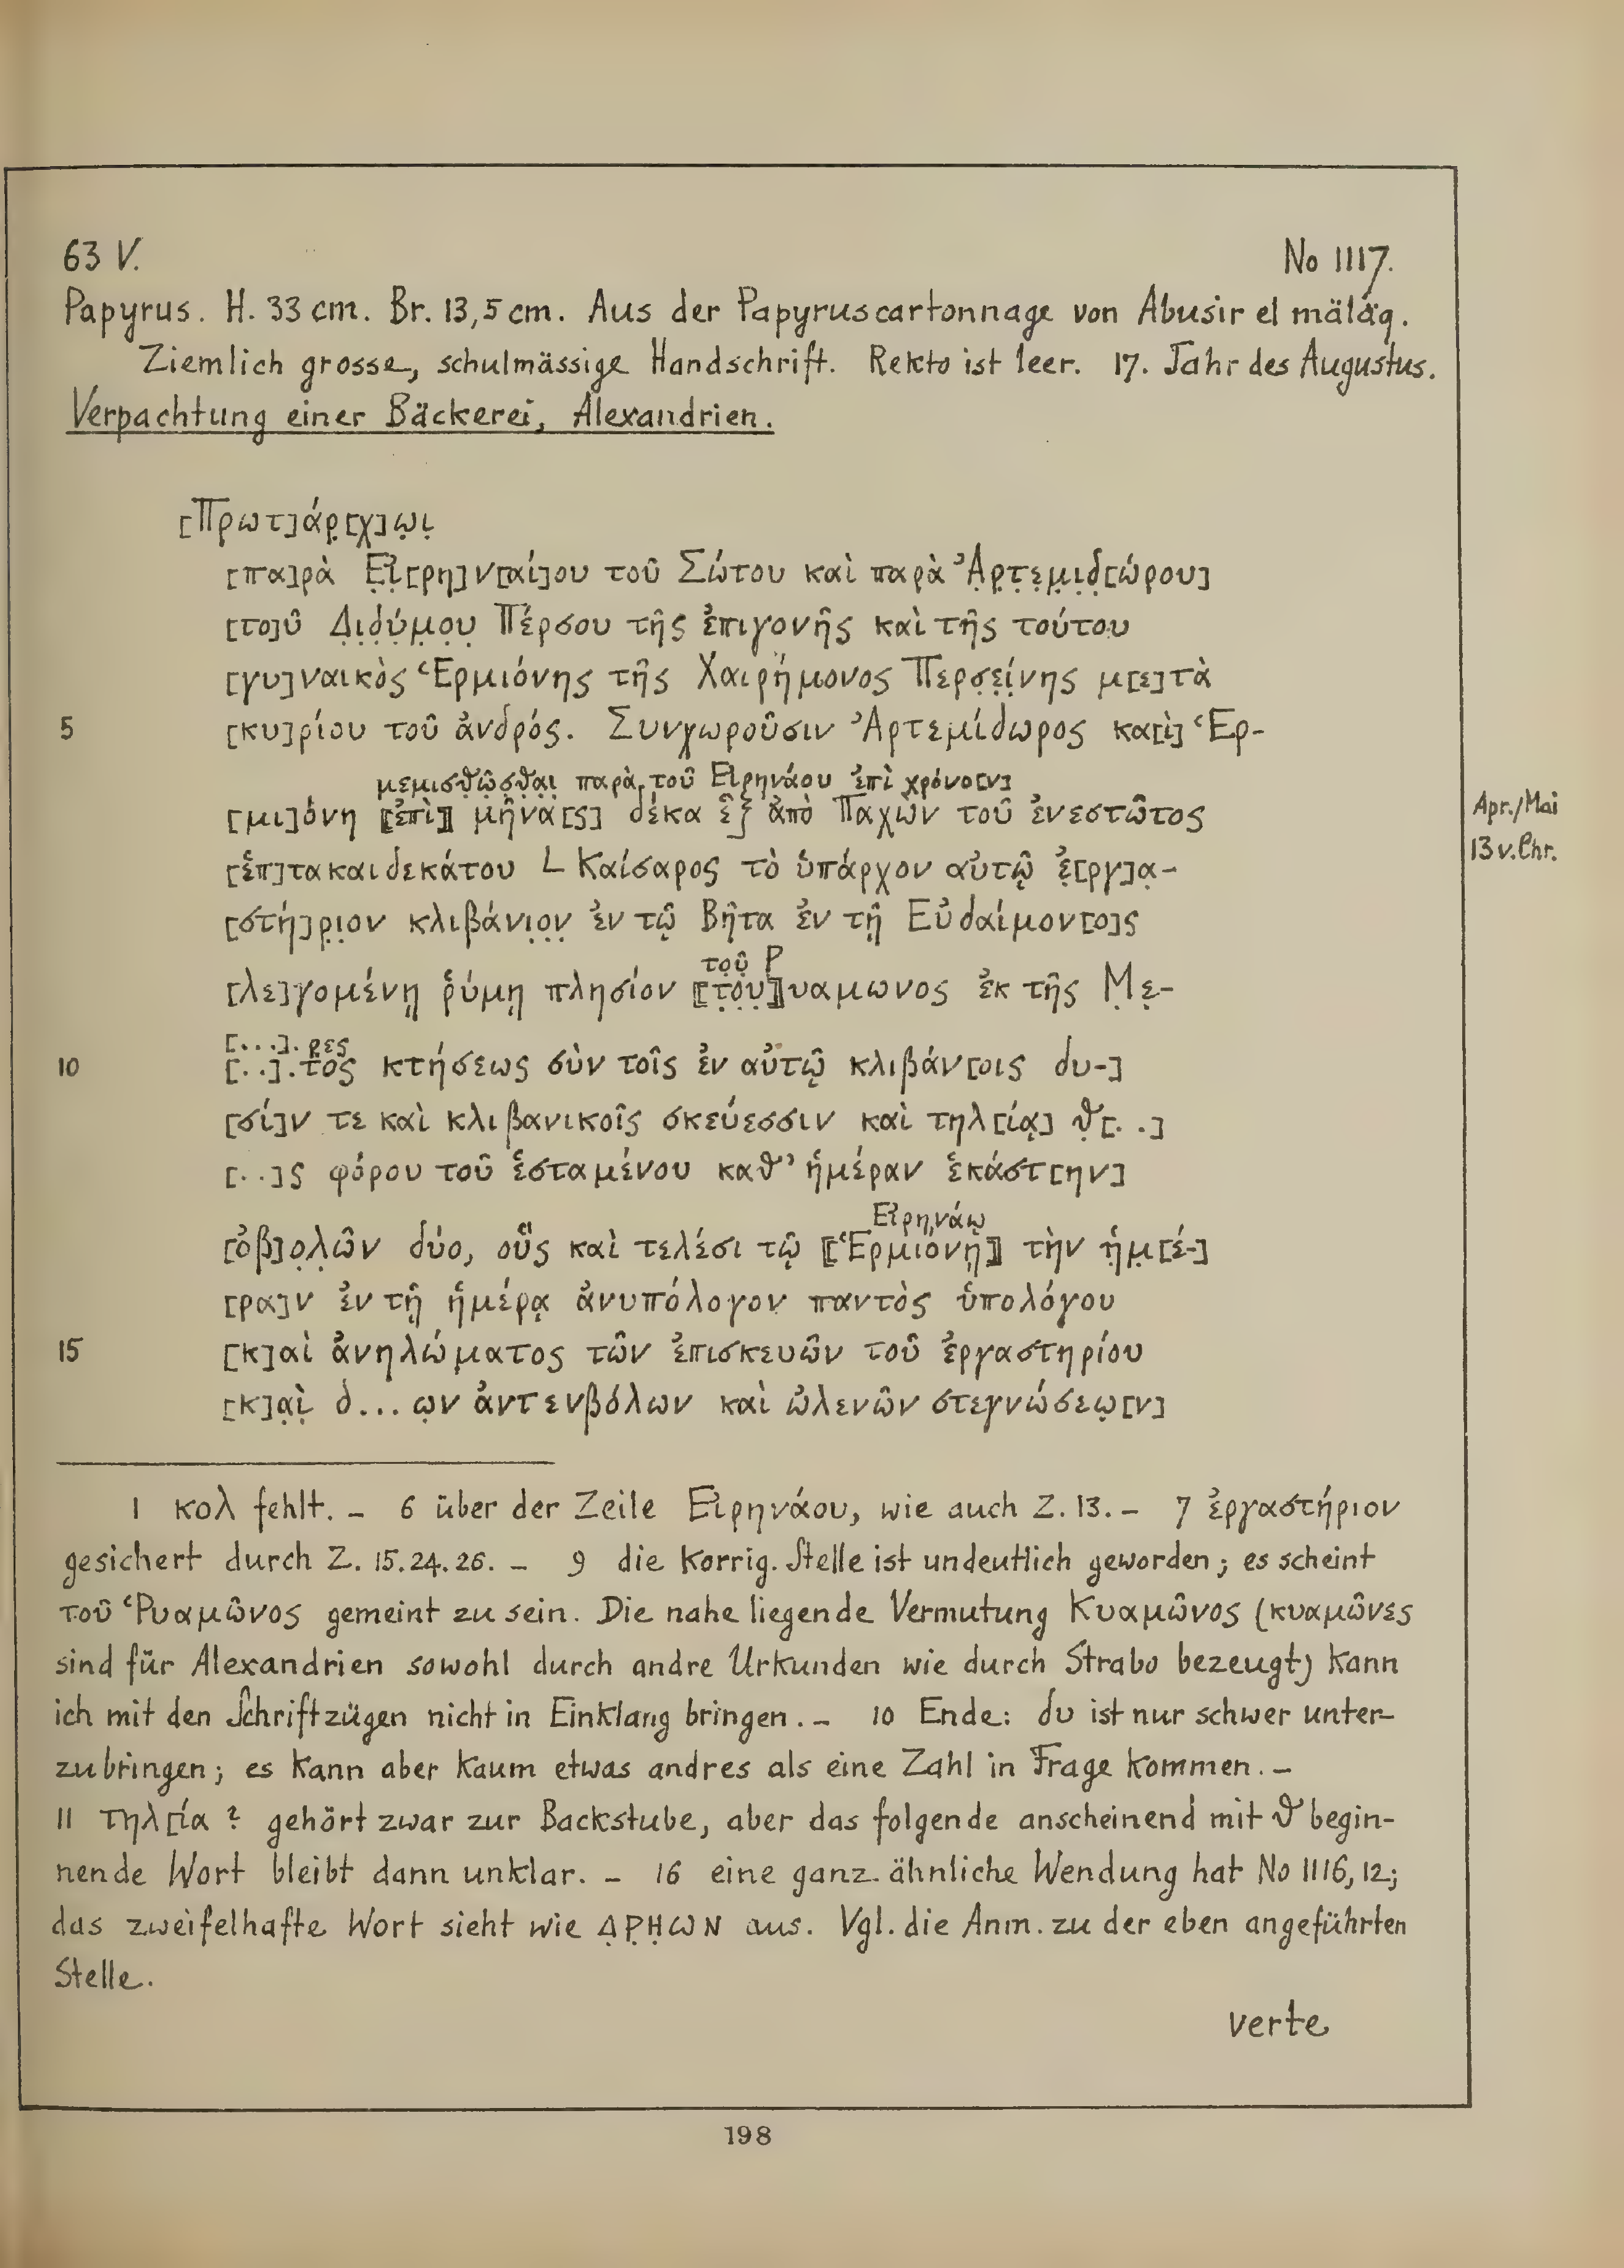 63 V.
No 1117.
Papyrus. H. 33 cm. Br. 13,5 cm. Aus der Papyruscartonnage von Abusir el mäläq.
Ziemlich grosse, schulmässige Handschrift. Rekto ist leer. 17. Jahr des Augustus.
Verpachtung einer Bäckerei, Alexandrien.
[Πρωτ]άρ̣[χ]ω̣ι̣
[πα]ρὰ Ε̣ἰ̣[ρη]ν[αί]ου τοῦ Σώτου καὶ παρὰ Ἀ̣ρ̣τ̣ε̣μ̣ι̣δ̣[ώρου]
[το]ῦ Δ̣ι̣δ̣ύ̣μ̣ο̣υ̣ Πέρσου τῆς ἐπιγονῆς καὶ τῆς τούτου
[γυ]ναικὸς Ἑρμιόνης τῆς Χαιρήμονος Περσ̣ε̣ί̣νης μ[ε]τὰ
5 [κυ]ρίου τοῦ ἀνδρός. Συνχωροῦσιν Ἀρτεμίδωρος κα[ὶ] Ἑρ-
μεμισθ̣ῶ̣σ̣θ̣α̣ι̣ παρὰ τοῦ Εἰρηνάου ἐπὶ χρόνο[ν]
[μι]όνη ⟦ἐπὶ⟧ μῆνα[ς] δέκα ἓξ ἀπὸ Παχὼν τοῦ ἐνεστῶτος
Apr./Mai
13 v. Chr.
[ἑπ]τακαιδεκάτου L Καίσαρος τὸ ὑπάρχον αὐτῷ ἐ̣[ργ]α̣-
[στή]ρ̣ι̣ον κλιβάνι̣ο̣ν̣ ἐν τῷ Βῆτα ἐν τῇ Εὐδαίμον[ο]ς
τοῦ̣ Ρ
[λε]γομένῃ ῥύμῃ πλησίον ⟦τ̣ο̣υ̣⟧υαμωνος ἐκ τῆς Μ̣ε̣-
[...].ρ̣ες
10 [..].τος κτήσεως σὺν τοῖς ἐν αὐτῷ κλιβάν[οις δυ-]
[σί]ν τε καὶ κλιβανικοῖς σκεύεσσιν καὶ τηλ[ίᾳ] θ̣[..]
[..]ς φόρου τοῦ ἑσταμένου καθ’ ἡμέραν ἑκάστ[ην]
Εἰρηνάῳ
[ὀβ]ο̣λ̣ῶν δύο, οὓς καὶ τελέσι τῷ ⟦Ἑρμιόνῃ⟧ τὴν ἡ̣μ̣[έ-]
[ρα]ν ἐν τῇ ἡμέρᾳ ἀνυπόλογον παντὸς ὑπολόγου
15 [κ]αὶ ἀνηλώματος τῶν ἐπισκευῶν τοῦ ἐργαστηρίου
[κ]α̣ὶ̣ δ...ω̣ν ἀντενβόλων καὶ ὠλενῶν στεγνώσεω̣[ν]
1 κολ fehlt. – 6 über der Zeile Εἰρηνάου, wie auch Z. 13. – 7 ἐργαστήριον
gesichert durch Z. 15.24.26. – 9 die korrig. Stelle ist undeutlich geworden; es scheint
τοῦ Ῥυαμῶνος gemeint zu sein. Die nahe liegende Vermutung Κυαμῶνος (κυαμῶνες
sind für Alexandrien sowohl durch andre Urkunden wie durch Strabo bezeugt) kann
ich mit den Schriftzügen nicht in Einklang bringen. – 10 Ende: δυ ist nur schwer unter-
zubringen; es kann aber kaum etwas andres als eine Zahl in Frage kommen. –
11 τηλ[ία ? gehört zwar zur Backstube, aber das folgende anscheinend mit θ begin-
nende Wort bleibt dann unklar. – 16 eine ganz ähnliche Wendung hat No 1116,12;
das zweifelhafte Wort sieht wie Δ̣Ρ̣Η̣ωΝ aus. Vgl. die Anm. zu der eben angeführten
Stelle.
verte
198